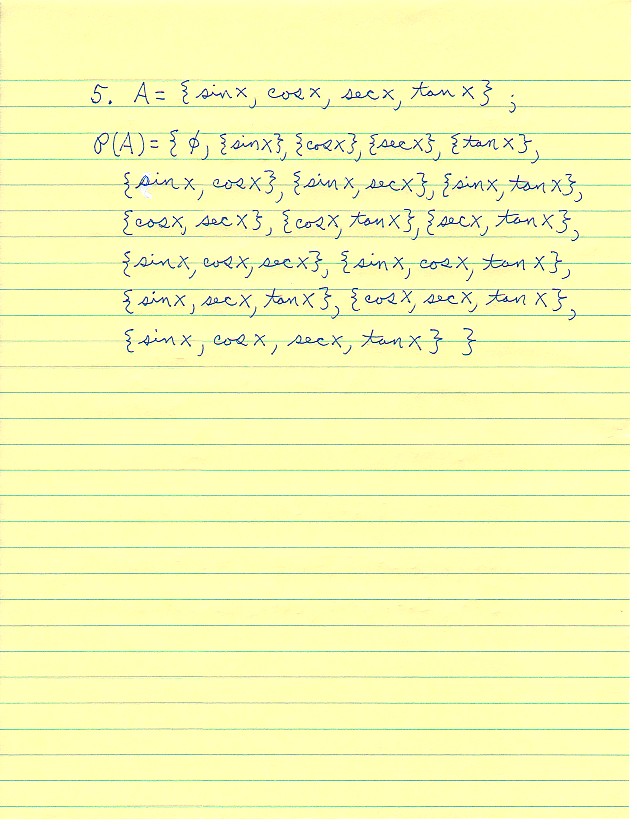 5. A = {sinx, cosx, secx, tanx} ;
P(A) = { ϕ, {sinx}, {cosx}, {secx}, {tanx},
{sinx, cosx}, {sinx, secx}, {sinx, tanx},
{cosx, secx}, {cosx, tanx}, {secx, tanx},
{sinx, cosx, secx}, {sinx, cosx, tanx},
{sinx, secx, tanx}, {cosx, secx, tanx},
{sinx, cosx, secx, tanx} }